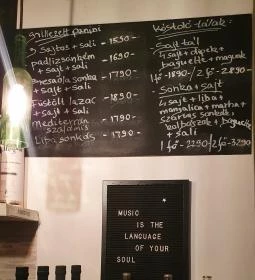 grillezett panini
Sajtos + sali - 1590 -
padlizsánkrém - 1690 -
+ sajt + sali
Bresaola sonka - 1790 -
+ sajt + sali
Füstölt lazac - 1890 -
+ sajt + sali
Mediterrán - 1790 -
szalámis
Liba sonkás - 1790 -
Kóstoló tálak:
- Sajttál
4 sajt + dipek +
baguette + magvak
1 fő - 1890 - / 2 fő - 2890 -
- Sonka + sajt
4 sajt + liba +
mangalica + marha +
szarvas sonkák,
kolbászok + baguette
+ sali
1 fő - 2290 - / 2 fő - 3290
MUSIC
IS THE
LANGUAGE
OF YOUR
SOUL